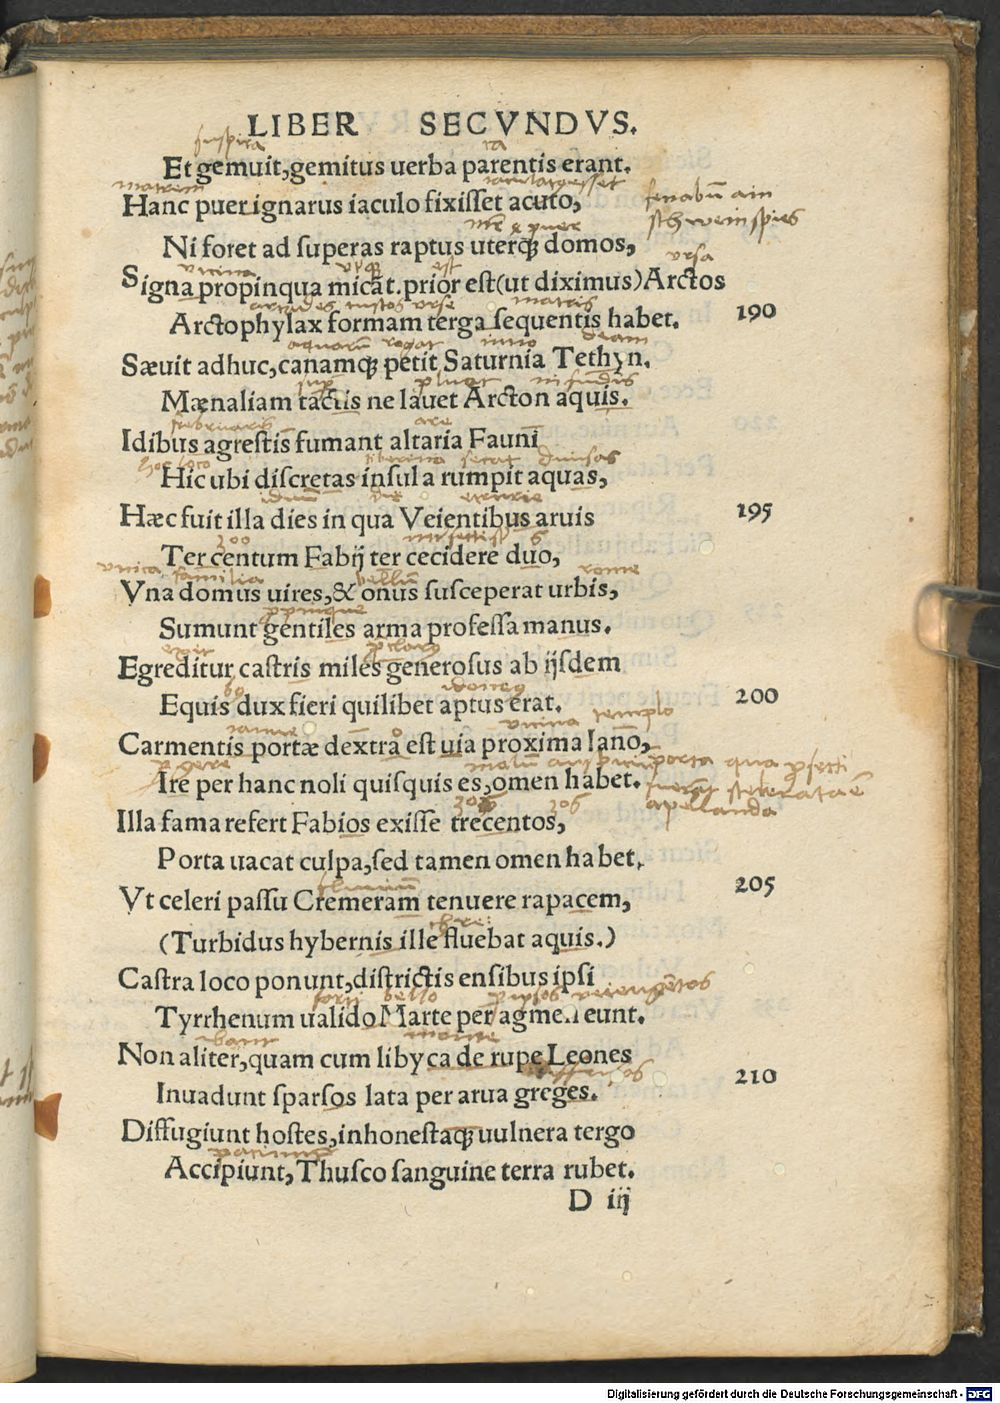 LIBER SECVNDVS.
suspiria
Et gemuit, gemitus uerba parentis erant.
matrem
Hanc puer ignarus iaculo fixisset acuto,
ain
schweinspies
Ni foret ad superas raptus uterq; domos,
vicina est vrsa
Signa propinqua micāt. prior est (ut diximus) Arctos
custos vrse matris
Arctophylax formam terga sequentis habet. 190
aquarū rogat iuno deam
Sæuit adhuc, canamq; petit Saturnia Tethyn.
Mænaliam tactis ne lauet Arcton aquis.
februarii are
Idibus agrestis fumant altaria Fauni
hoc loco tiberina secat diuisas
Hic ubi discretas insula rumpit aquas,
Hæc fuit illa dies in qua Veientibus aruis 195
300 6
Ter centum Fabij ter cecidere duo,
vnica familia bellū rome
Vna domus uires, & onus susceperat urbis,
Sumunt gentiles arma professa manus.
Egreditur castris miles generosus ab ijsdem
Equis dux fieri quilibet aptus erat. 200
vicina templo
Carmentis portæ dextra est uia proxima Iano,
porta qua
Ire per hanc noli quisquis es, omen habet.
apellanda
306 306
Illa fama refert Fabios exisse trecentos,
Porta uacat culpa, sed tamen omen habet,
Vt celeri passu Cremeram tenuere rapacem, 205
(Turbidus hybernis ille fluebat aquis.)
Castra loco ponunt, districtis ensibus ipsi
forti bello
Tyrrhenum ualido Marte per agmen eunt.
Non aliter, quam cum libyca de rupe Leones
Inuadunt sparsos lata per arua greges. 210
Diffugiunt hostes, inhonestaq; uulnera tergo
Accipiunt, Thusco sanguine terra rubet.
D iij
Digitalisierung gefördert durch die Deutsche Forschungsgemeinschaft - DFG